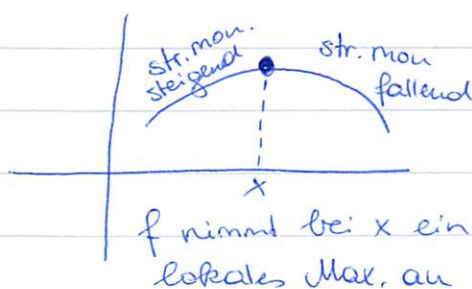 str. mon.
steigend
str. mon
fallend
x
f nimmt bei x ein
lokales Max. an